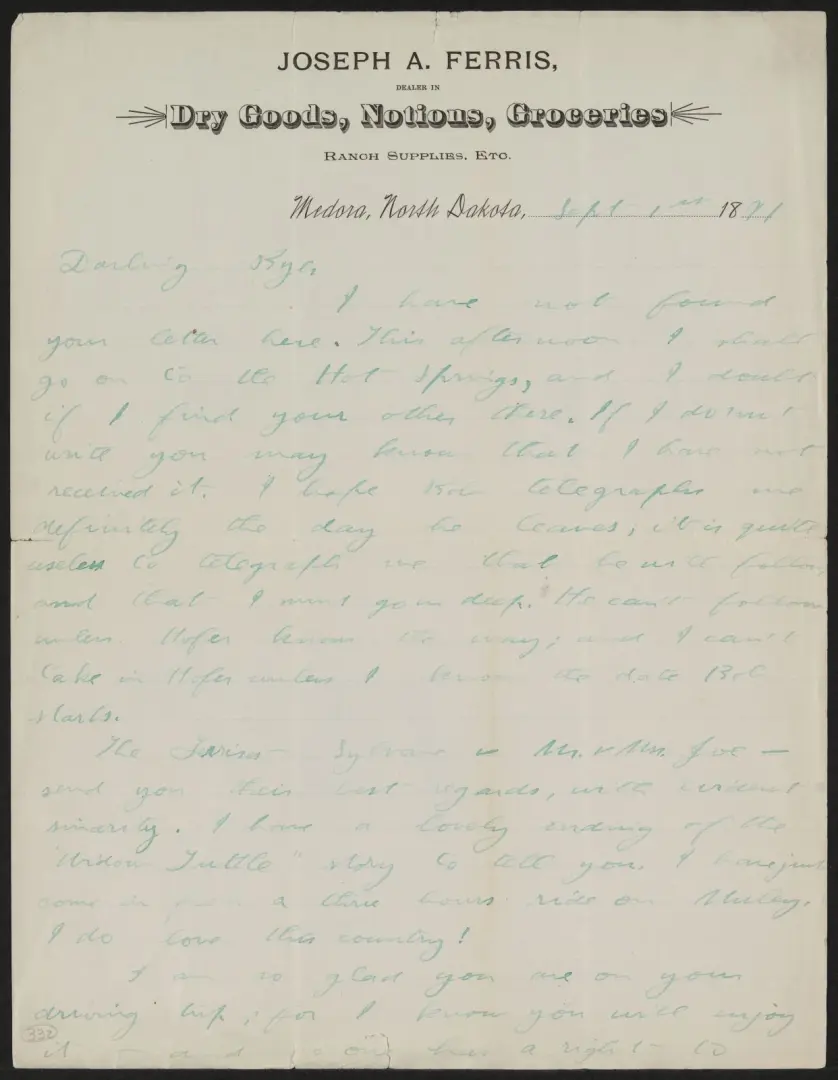 JOSEPH A. FERRIS,
DEALER IN
Dry Goods, Notions, Groceries
RANCH SUPPLIES, ETC.
Medora, North Dakota, Sept 1st 1891
Darling Bye,
I have not found
your letter here. This afternoon I shall
go on to the Hot Springs, and I doubt
if I find your other there. If I don't
write you may know that I have not
received it. I hope Bob telegraphs me
definitely the day he leaves; it is quite
useless to telegraph me that he will follow,
and that I must go in deep. He can't follow
unless Hofer knows the way; and I can't
take in Hofer unless I know the date Bob
starts.
The Ferrises – Sylvane & Mr. & Mrs. Joe –
send you their best regards, with evident
sincerity. I have a lovely ending of the
Tuttle" story to tell you. I have just
come in from a three hours ride on Muley.
I do love this country!
I am so glad you are on your
driving trip; for I know you will enjoy
it – and no one has a right to
332